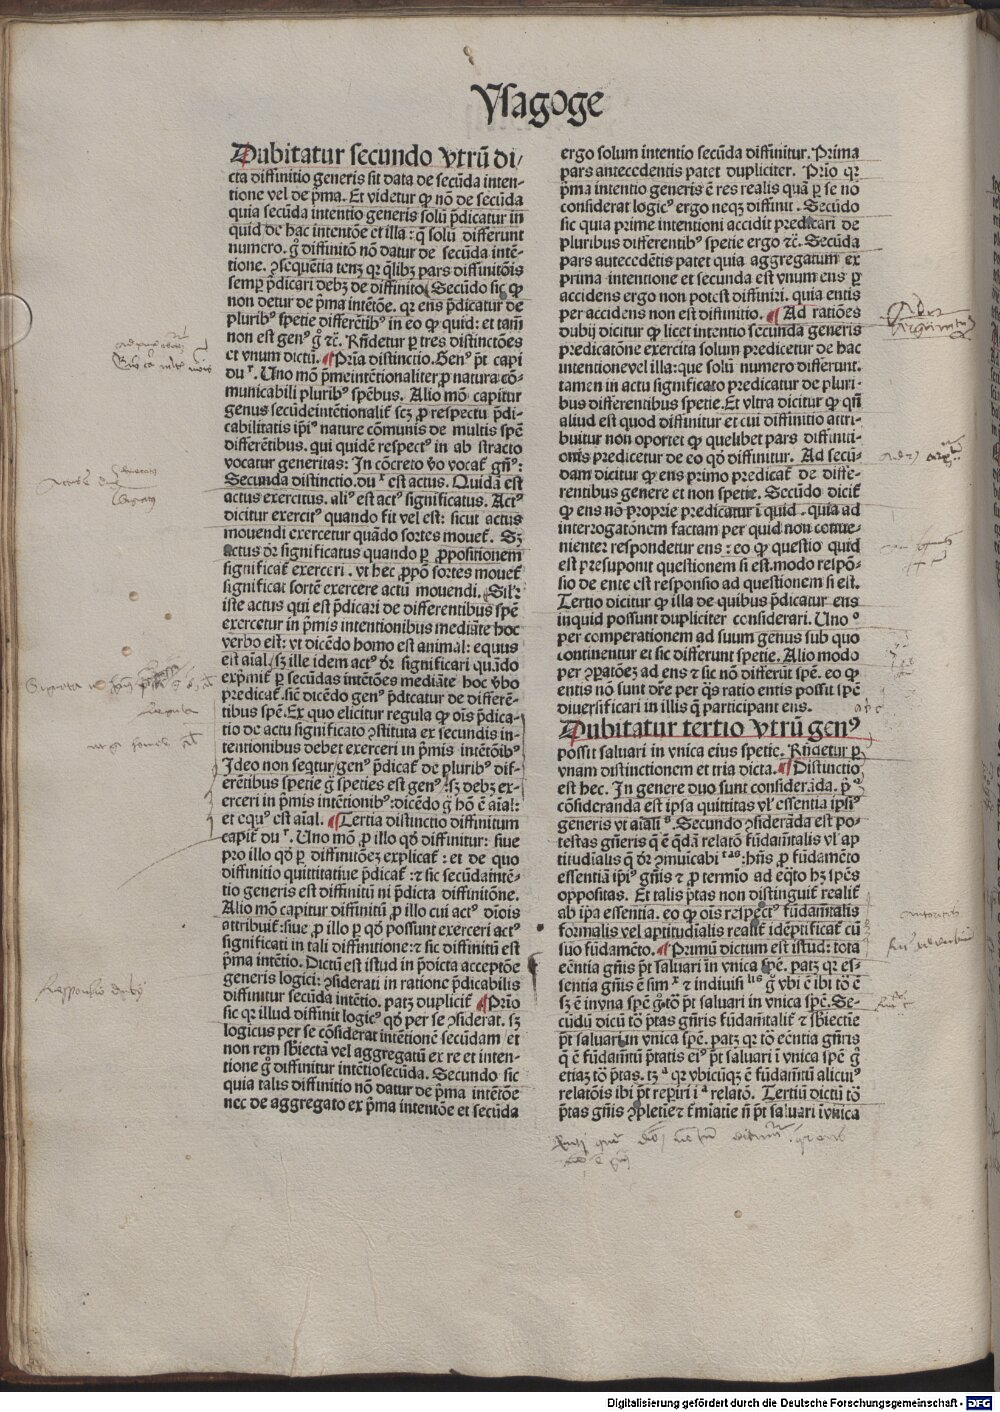 Ysagoge
Dubitatur secundo vtrū di/
cta diffinitio generis sit data de secūda inten-
tione vel de pma. Et videtur ꝙ nō de secūda
quia secūda intentio generis solū p̄dicatur in
quid de hac intentōe et illa: q̄ solū differunt
numero. g̊ diffinitō nō datur de secūda intē-
tione. ꝯsequētia tenꝫ qꝛ q̄libꝫ pars diffinitōis
semꝑ p̄dicari debꝫ de diffinito. Secūdo sic ꝙ
non detur de p̄ma intētōe. qꝛ ens p̄dicatur de
pluribꝰ spetie differētibꝰ in eo ꝙ quid: et tamē
non est genꝰ g̊ ⁊c̄. Rn̄detur ꝑ tres distinctōes
et vnum dictū. ¶ Pria distinctio. Genꝰ p̄t capi
duʳ. Uno mō p̄meintētionaliter ꝓ natura cō-
municabili pluribꝰ spēbus. Alio mō capitur
genus secūdeintētionalit̄ scꝫ ꝓ respectu p̄di-
cabilitatis ip̄iꝰ nature cōmunis de multis spē
differētibus. qui quidē respectꝰ in ab stracto
vocatur generitas: In cōcreto v̊o vocat̄ gn̄ꝰ:
Secunda distinctio. duˣ est actus. Quidā est
actus exercitus. aliꝰ est actꝰ significatus. Actꝰ
dicitur exercitꝰ quando fit vel est: sicut actus
mouendi exercetur quādo sortes mouet̄. Sꝫ
actus dr̄ significatus quando ꝑ ꝓpositionem
significat̄ exerceri. vt hec ꝓpō sortes mouet̄
significat sortē exercere actū mouendi. Silʳr
iste actus qui est p̄dicari de differentibus spē
exercetur in p̄mis intentionibus mediāte hoc
verbo est: vt dicēdo homo est animal: equus
est aīal. sꝫ ille idem actꝰ dr̄ significari quādo
exp̄mit̄ ꝑ secūdas intētōes mediāte hoc v̊bo
predicat̄. sic dicēdo genꝰ p̄dicatur de differē-
tibus spē. Ex quo elicitur regula ꝙ oīs p̄dica-
tio de actu significato ꝯstituta ex secundis in-
tentionibus debet exerceri in p̄mis intētōibꝰ
Ideo non seqtur genꝰ p̄dicat̄ de pluribꝰ dif-
erētibus spetie g̊ speties est genꝰ. sꝫ debꝫ ex-
erceri in p̄mis intētionibꝰ: dicēdo g̊ hō ē aīal:
et equꝰ est aīal. ¶ Tertia distinctio diffinitum
capit̄ duʳ. Uno mō ꝓ illo qd̄ diffinitur: siue
pro illo qd̄ ꝑ diffinitōeꝫ explicat̄: et de quo
diffinitio quittitatiue p̄dicat̄: ⁊ sic secūdaintē-
tio generis est diffinitū ni p̄dicta diffinitōne.
Alio mō capitur diffinitū ꝓ illo cui actꝰ dīois
attribuit̄: siue ꝓ illo ꝑ qd̄ possunt exerceri actꝰ
significati in tali diffinitione: ⁊ sic diffinitū est
p̄ma intētio. Dictū est istud in p̄dicta acceptōe
generis logici: ꝯsiderati in ratione p̄dicabilis
diffinitur secūda intētio. patꝫ duplicit̄ ¶ Prio
sic qꝛ illud diffinit logicꝰ qd̄ per se ꝯsiderat. sꝫ
logicus per se cōsiderat intētionē secūdam et
non rem sb̄iectā vel aggregatū ex re et inten-
tione g̊ diffinitur intētiosecūda. Secundo sic
quia talis diffinitio nō datur de p̄ma intētōe
nec de aggregato ex p̄ma intentōe et secūda
ergo solum intentio secūda diffinitur. Prima
pars antecedentis patet dupliciter. Prio qꝛ
p̄ma intentio generis ē res realis quā ꝑ se nō
considerat logicꝰ ergo neqꝫ diffinit. Secūdo
sic quia prime intentioni accidit predicari de
pluribus differentibꝰ spetie ergo ⁊c̄. Secūda
pars autecedētis patet quia aggregatum ex
prima intentione et secunda est vnum ens ꝑ
accidens ergo non potest diffiniri. quia entis
per accidens non est diffinitio. ¶ Ad ratiōes
dubij dicitur ꝙ licet intentio secunda generis
predicatōne exercita solum predicetur de hac
intentionevel illa: que solū numero differunt.
tamen in actu significato predicatur de pluri-
bus differentibus spetie. Et vltra dicitur ꝙ qn̄
aliud est quod diffinitur et cui diffinitio attri-
buitur non oportet ꝙ quelibet pars diffiniti-
onis predicetur de eo qd̄ diffinitur. Ad secū-
dam dicitur ꝙ ens primo predicat̄ de diffe-
rentibus genere et non spetie. Secūdo dicit̄
ꝙ ens nō proprie predicatur ī quid. quia ad
interrogatōnem factam per quid non conue-
nienter respondetur ens: eo ꝙ questio quid
est presuponit questionem si est. modo respō-
sio de ente est responsio ad questionem si est.
Tertio dicitur ꝙ illa de quibus p̄dicatur ens
inquid possunt dupliciter considerari. Uno º
per comperationem ad suum genus sub quo
continentur et sic differunt spetie. Alio modo
per ꝯpatōeꝫ ad ens ⁊ sic nō differūt spē. eo ꝙ
entis nō sunt dr̄e per q̄s ratio entis possit spē
diuersificari in illis q̄ participant ens.
Dubitatur tertio vtrū genꝰ
possit saluari in vnica eius spetie. Rn̄detur ꝑ
vnam distinctionem et tria dicta. ¶ Distinctio
est hec. In genere duo sunt consideráda. p̄ª
cōsideranda est ipsa quittitas vl̓ essentia ipsiꝰ
generis vt aīalīº. Secundo ꝯsiderāda est po-
testas gn̄eris q̄ ē q̄dā relatō fūdam̄talis vl̓ ap
titudīalis q̄ dr̄ ꝯmuīcabiᵗᵃˢ: hn̄s ꝓ fūdamēto
essentiā ip̄iꝰ gn̄is ⁊ ꝓ termīo ad eq̄to hꝫ spēs
oppositas. Et talis p̄tas non distinguit̄ realit̄
ab ip̄a essentia. eo ꝙ oīs respectꝰ fūdam̄talis
formalis vel aptitudīalis realit̄ idēptificat̄ cū
suo fūdamēto. ¶ Primū dictum est istud: tota
eēntia gn̄is p̄t saluari in vnica spē. patꝫ qꝛ es-
sentia gn̄is ē simˣ ⁊ indiuisiˡⁱˢ g̊ vbi ē ibi tō ē
sꝫ ē invna spē g̊tō p̄t saluari in vnica spē. Se-
cūdū dicū tō p̄tas gn̄ris fūdam̄talit̄ ⁊ sb̄iectīe
p̄t saluari in vnica spē. patꝫ qꝛ tō eēntia gn̄ris
q̄ ē fūdam̄tū p̄tatis eiꝰ p̄t saluari ī vnica spē g̊
etiaꝫ tō p̄tas. tꝫª qꝛ vbicūqꝫ ē fūdam̄tū alicuiꝰ
relatōis ibi p̄t reꝑiri īª relatō. Tertiū dictū tō
p̄tas gn̄is ꝯpletīe ⁊ t̄mīatie n̄ p̄t saluari īvnica